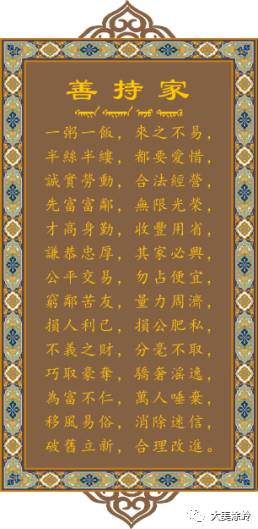 善持家
一粥一飯，來之不易，
半絲半縷，都要愛惜，
誠實勞動，合法經營，
先富富鄰，無限光榮，
才高身勤，收豐用省，
謙恭忠厚，其家必興，
公平交易，勿占便宜，
窮鄰苦友，量力周濟，
損人利己，損公肥私，
不義之財，分毫不取，
巧取豪奪，驕奢淫逸，
為富不仁，萬人唾棄，
移風易俗，消除迷信，
破舊立新，合理改進。
大美涂岭